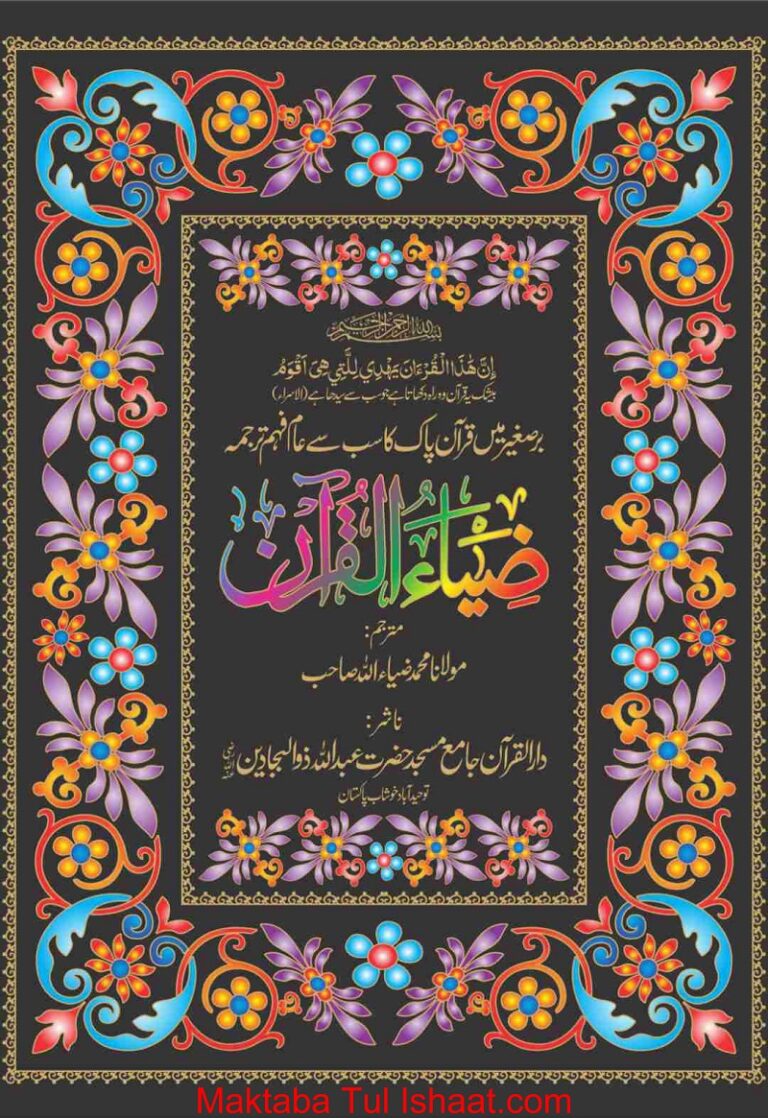 بسم الله الرحمن الرحيم
اِنَّ هٰذَا الْقُرْءَانَ يَهْدِي لِلَّتِي هِىَ اَقْوَمُ
بیشک یہ قرآن وہ راہ دکھاتا ہے جو سب سے سیدھا ہے (الاسراء)
برصغیر میں قرآن پاک کا سب سے عام فہم ترجمہ
ضِیَاءُ الْقُرْآن
مترجم:
مولانا محمد ضیاء اللہ صاحب
ناشر:
دارالقرآن جامع مسجد حضرت عبداللہ ذوالبجادین رضی اللہ عنہ
توحید آباد خوشاب پاکستان
Maktaba Tul Ishaat.com